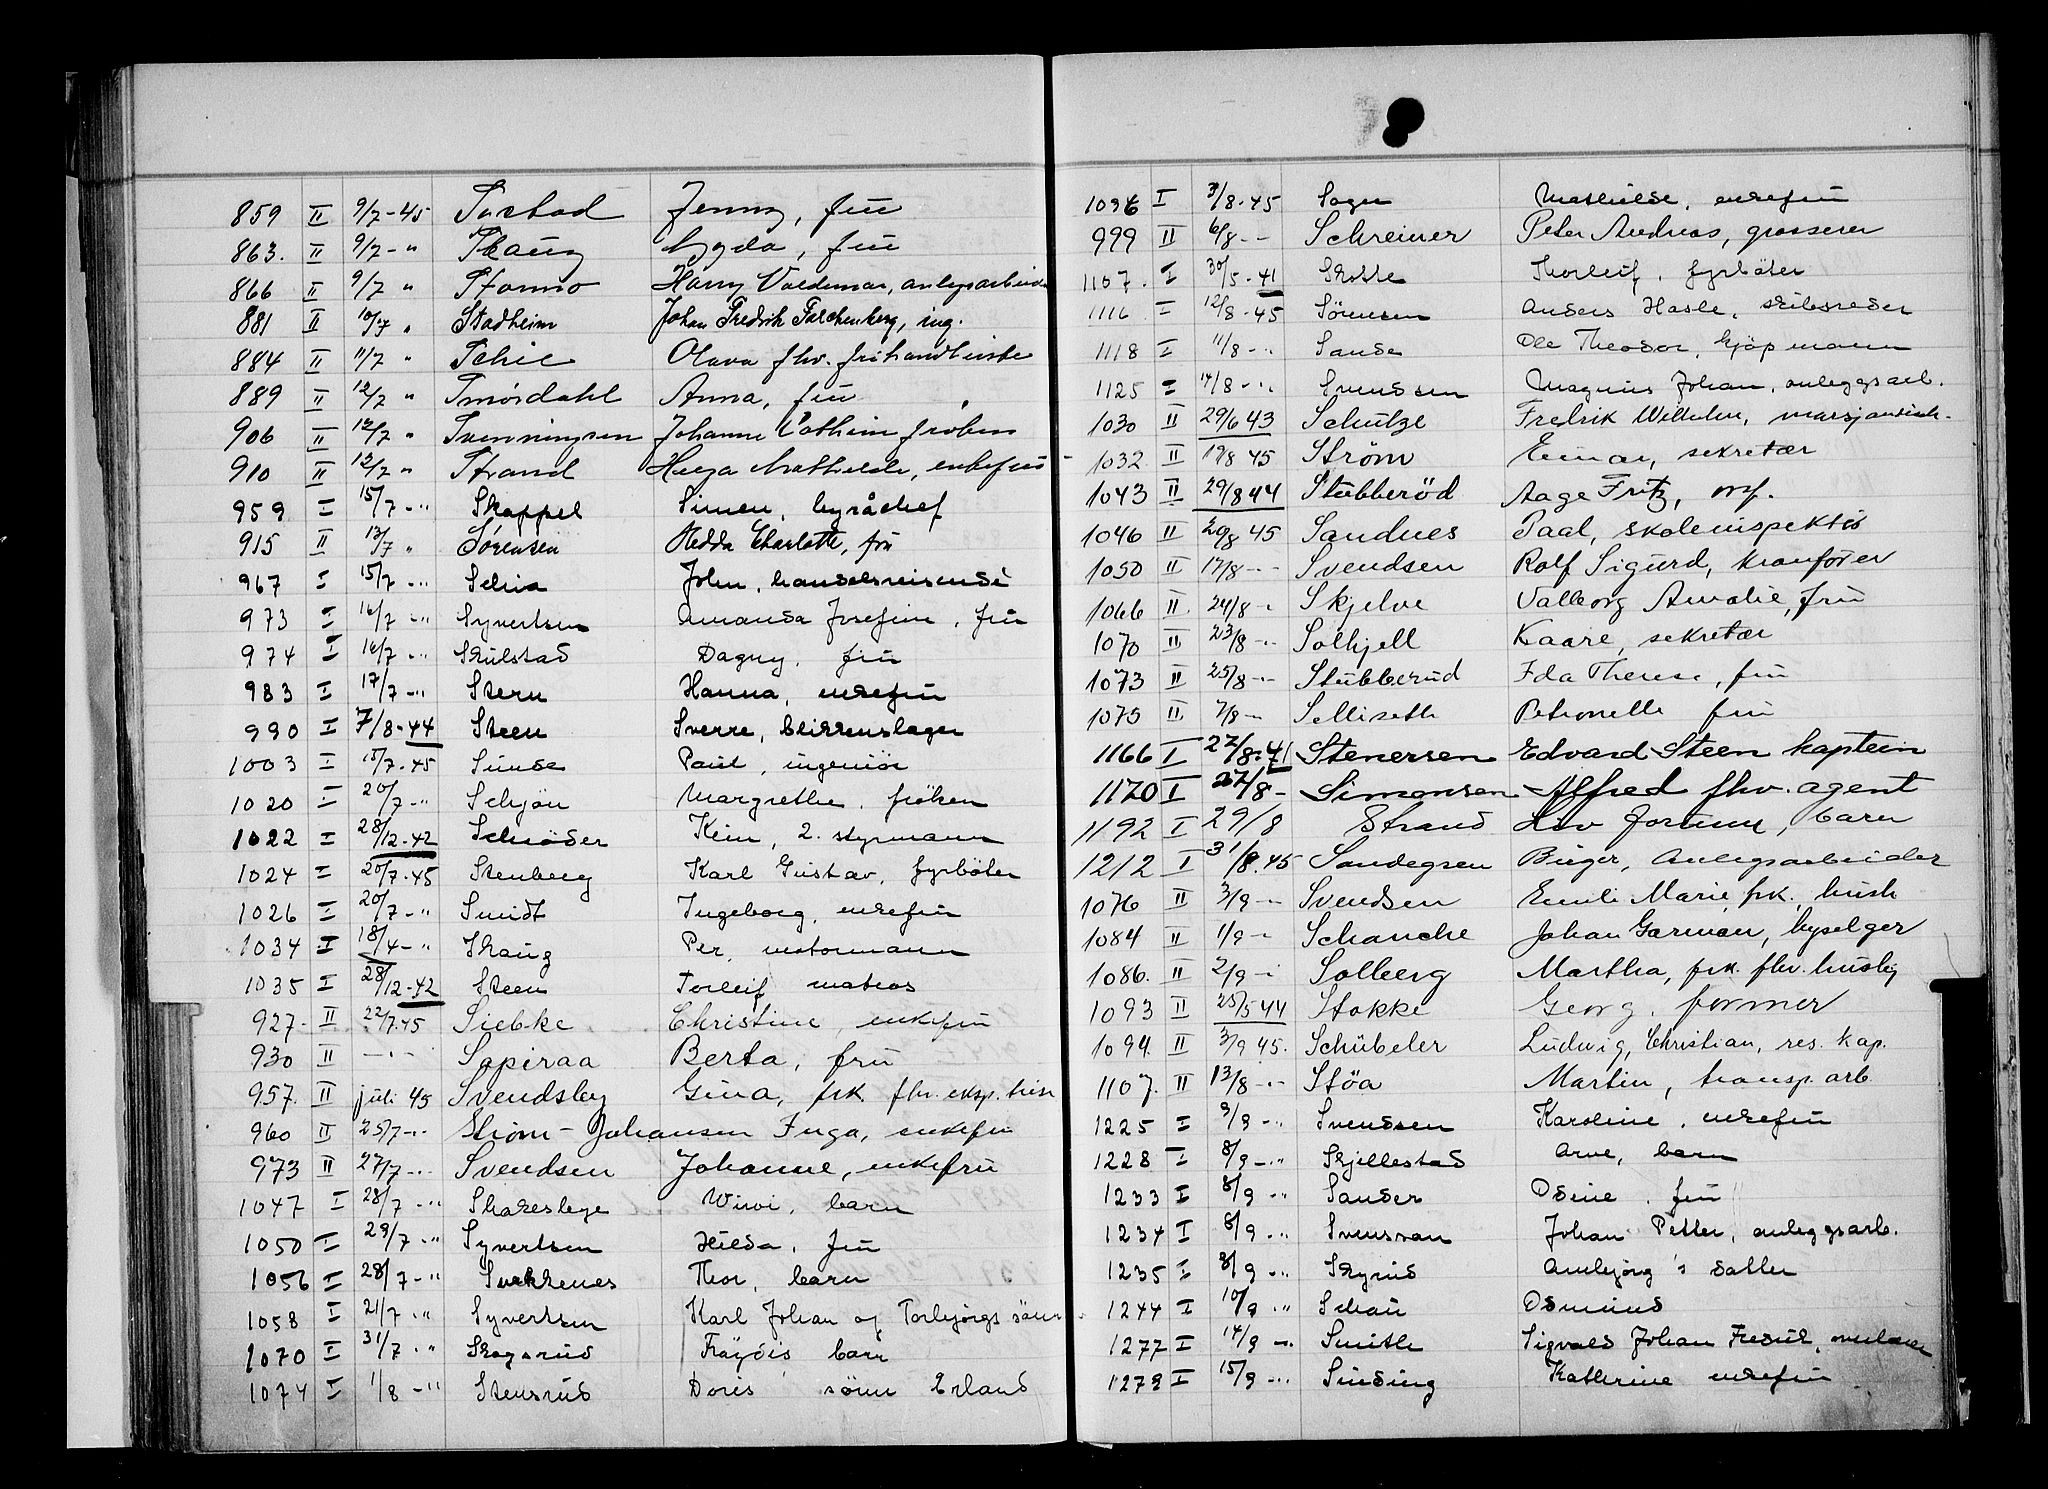 859 II 9/7-45 Sustad Jenny, fru
863. II 9/7 - " Skaug Lygda, fru
866 II 9/7 " Stormo Harry Valdemar, anlegsarbeid
881 II 10/7 " Stadheim Johan Fredrik Paschenberg, ing.
884 II 11/7 " Schie Olava fhv. fruhandlerske
889 II 12/7 " Smørdahl Anna, fru
906 II 12/7 " Svenningsen Johanne Cathrine frøken
910 II 12/7 " Strand Helga Mathilde, enkefru
959 I 15/7 - " Skappel Simen, byråchef
915 II 13/7 " Sørensen Hedda Charlotte, fru
967 I 15/7 - " Schia John, handelsreisende
973 I 16/7 - " Syvertsen Amanda Josefine, fru
974 I 16/7 - " Skulstad Dagny, fru
983 I 17/7 - " Stern Hanna, enkefru
990 I 7/8-44 Steen Sverre, blikkenslager
1003 I 18/7-45 Sunde Paul, ingeniör
1020 I 20/7 - " Schjön Margrethe, fröken
1022 I 28/12-42 Schröder Keim, 2. styrmann
1024 I 20/7-45 Stenberg Karl Gustav, fyrböter
1026 I 20/7 - " Smidt Ingeborg, enkefru
1034 I 18/4 - " Skaug Per, motormann
1035 I 28/12-42 Steen Torleif matros
927. II 22/7.45 Siebke Christine, enkefru
930 II - " - Sapiraa Berta, fru
957. II juli 45 Svendsby Gina, frk fhv. eksp.trise
960 II 25/7 - " Strøm-Johansen Inga, enkefru
973 II 27/7 - " Svendsen Johanne, enkefru
1047 I 28/7 - " Skakeslye Wivi, barn
1050 I 29/7 - " Syvertsen Hilda, fru
1056 I 28/7 - " Svekkenes Thor, barn
1058 I 21/7 - " Syvertsen Karl Johan og Torbjörgs sönn
1070 I 31/7 - " Skogsrud Fröydis barn
1074 I 1/8 - " Stensrud Doris' sönn Erland
1096 I 3/8-45 Sogn Mathilde, enkefru
999 II 6/8 - - Schreiner Peter Andreas, grosserer
1107. I 30/5-41 Skotte Thorleif, fyrböter
1116 I 12/8-45 Sörensen Anders Hasle, skibsreder
1118 I 11/8 - " Sande Ole Theodor, kjöpmann
1125 I 14/8 - " Svendsen Magnus Johan, anleggsarb.
1030 II 29/6 43 Schultze Fredrik Wilhelm,
1032 II 19/8 45 Strøm Einar, sekretær
1043 II 29/8 44 Stubberöd Aage Fritz,
1046 II 20/8 45 Sandnes Paal, skoleinspektör
1050 II 17/8 - - Svendsen Rolf Sigurd, kranförer
1066 II 24/8 - " Skjelve Valborg Amalie, fru
1070 II 23/8 - " Solhjell Kaare, sekretær
1073 II 25/8 - " Stubberud Ida Therese, fru
1075 II 7/8 - Selliseth Petronelle fru
1166 I 27/8-41 Stenersen Edvard Steen kaptein
1170 I 27/8 - Simonsen Alfred fhv. agent
1192 I 29/8 Strand Liv Jorunn, barn
1212 I 31/8.45 Sandegren Birger, Anlegsarbeider
1076 II 3/9 - " Svendsen Emili Marie, frk., hush
1084 II 1/9 - " Schanche Johan Garman, byselger
1086. II 2/9 - " Solberg Martha, frk. fhv. husbj
1093 II 25/5 44 Stokke Georg, former
1094. II 3/9 45. Schübeler Ludwig, Christian, res. kap.
1107. II 13/8 - " Stöa Martin, transp. arb.
1225 I 9/9 - " Svendsen Karoline, enkefru
1228 I 8/9 - " Skjellestad Arve, barn
1233 I 8/9 - " Sander Osine, fru
1234 I 8/9 - " Svensvan Johan Petter, anleggsarb.
1235 I 8/9 - " Skyrud Annbjörg's datter
1244 I 10/9 " Schau Osmund
1277 I 14/9 - " Smith Sigvald Johan Fredrik,
1279 I 15/9 - " Sinding Kathrine enkefru